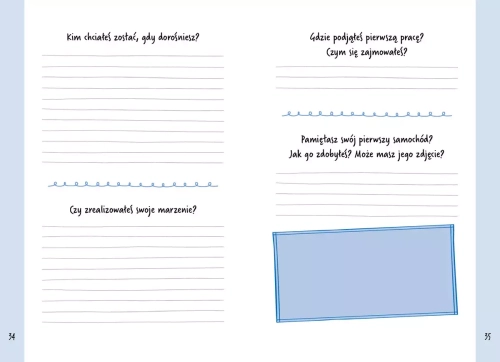 Kim chciałeś zostać, gdy dorośniesz?
Czy zrealizowałeś swoje marzenie?
34
Gdzie podjąłeś pierwszą pracę?
Czym się zajmowałeś?
Pamiętasz swój pierwszy samochód?
Jak go zdobyłeś? Może masz jego zdjęcie?
35